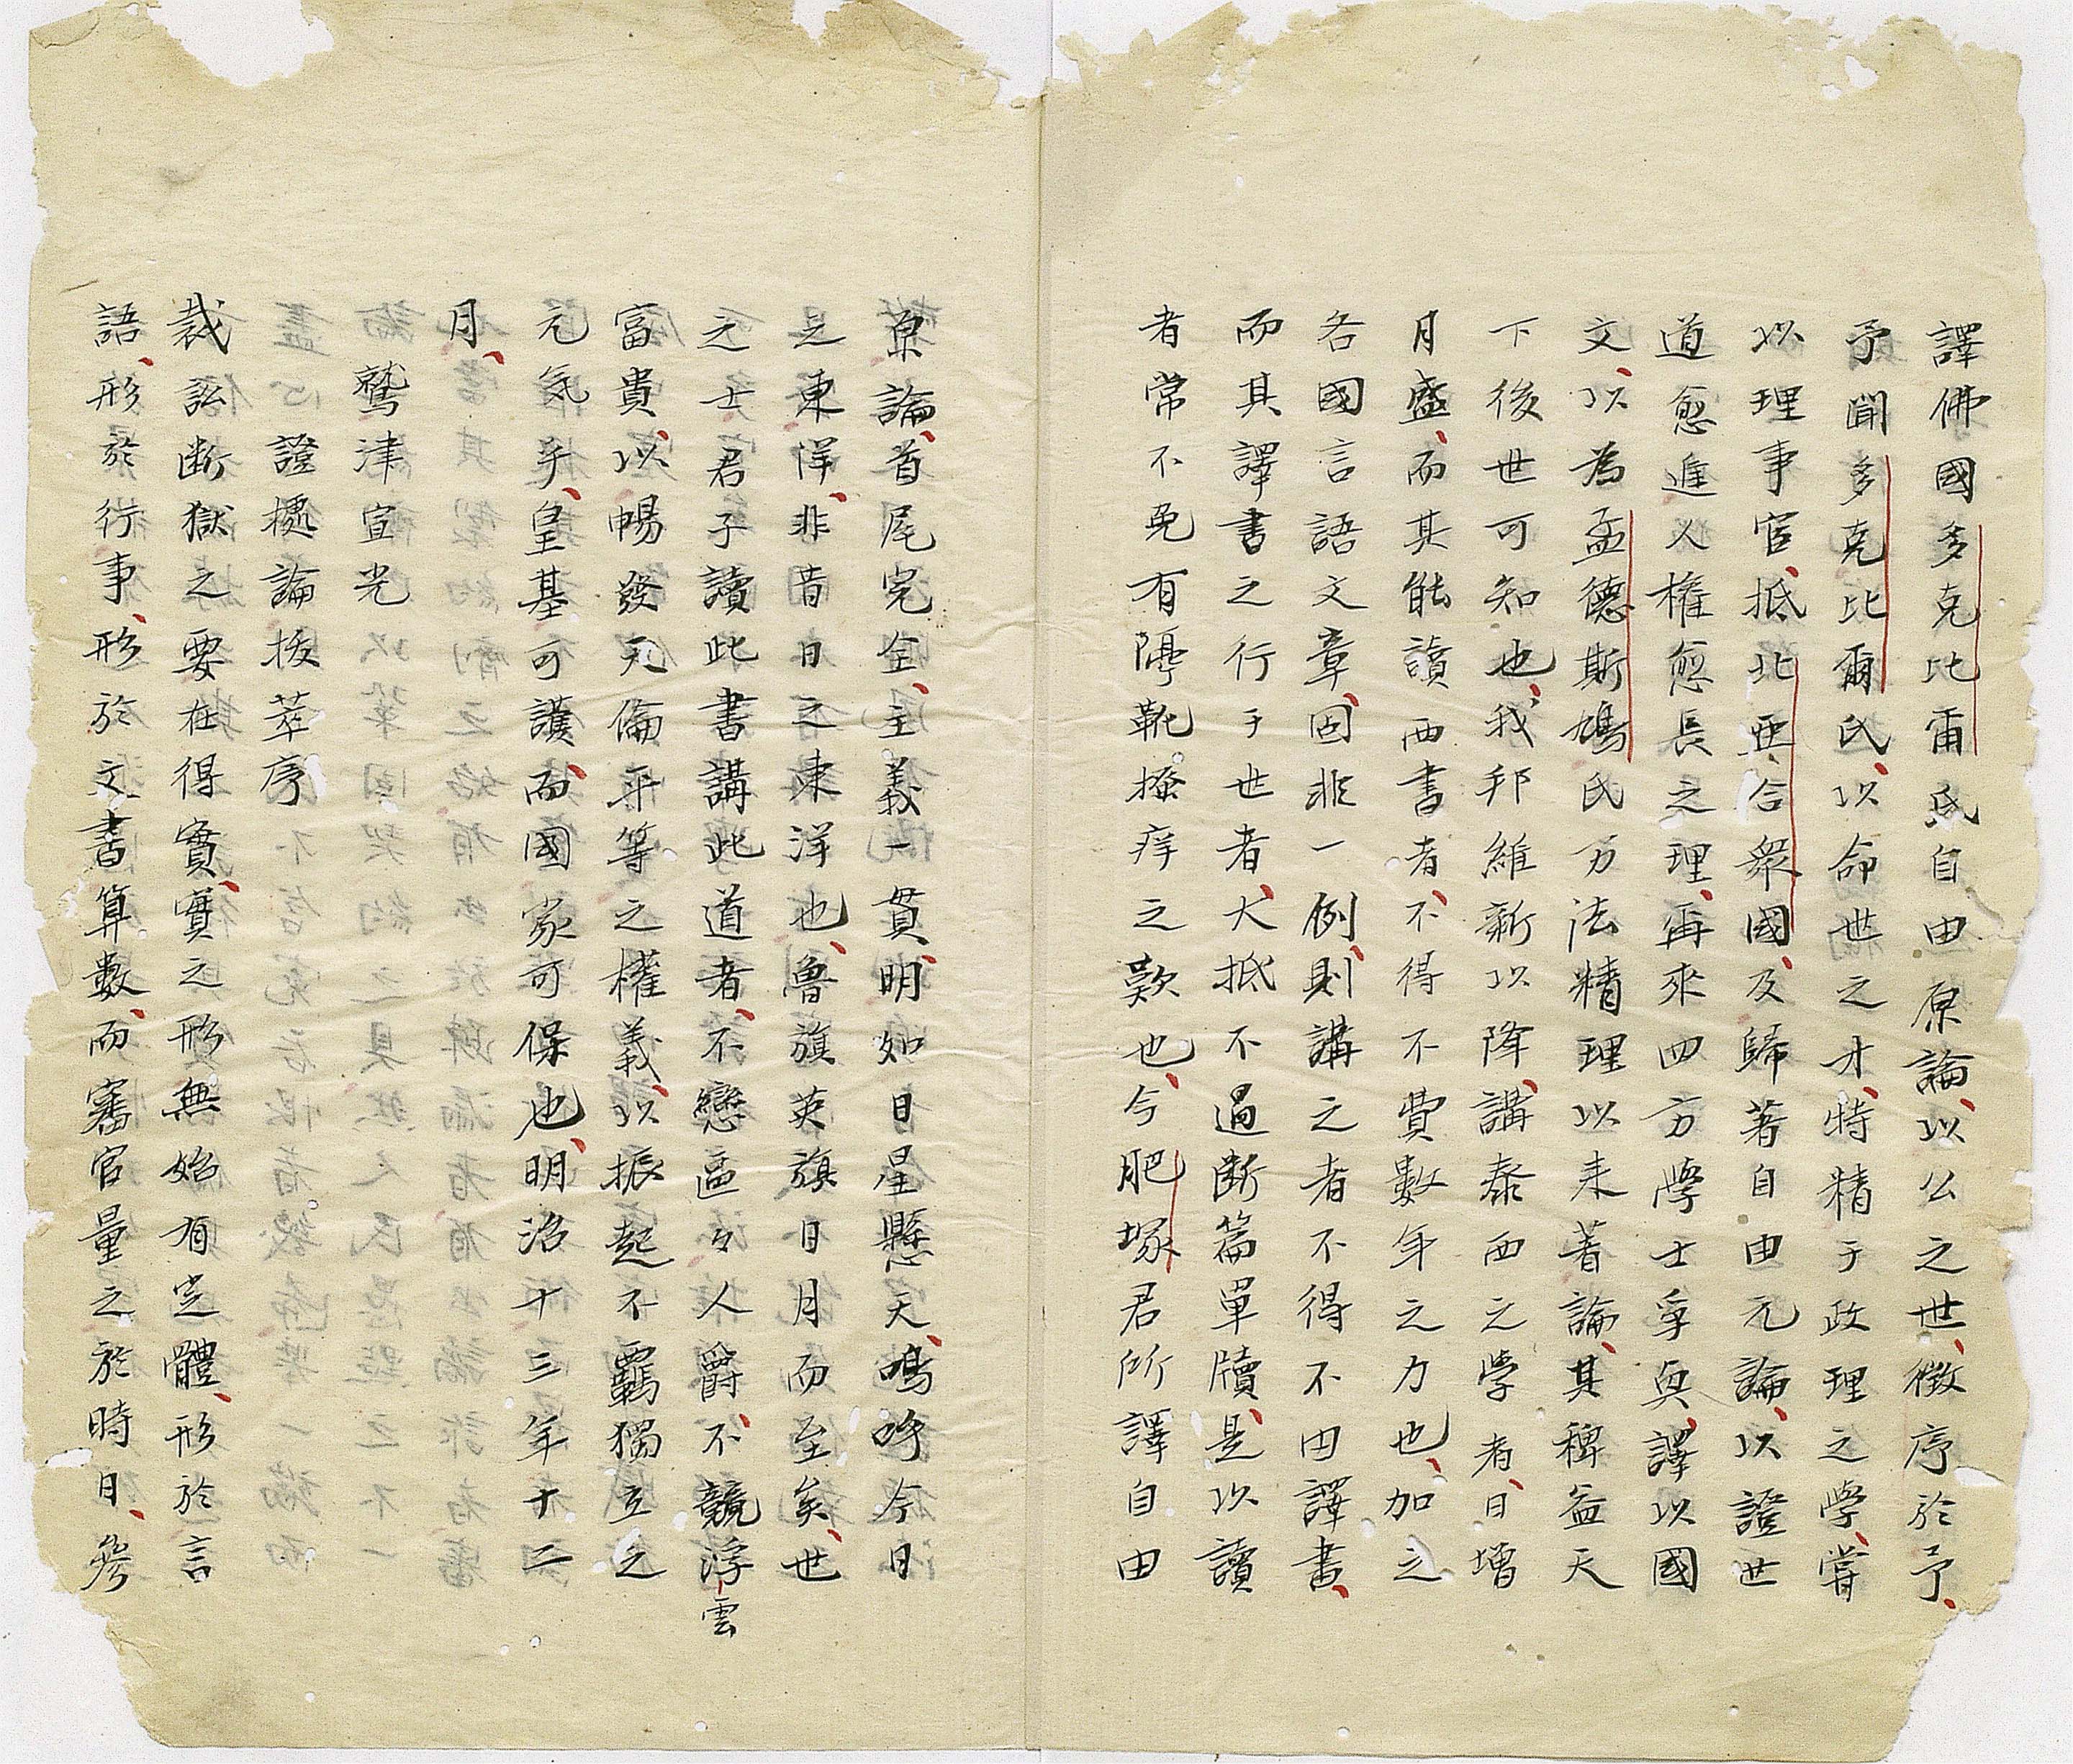 譯佛國多克比雷氏自由原論、以公之世、徴序於予、
予聞多克比爾氏、以命世之才、特精于政理之學、嘗
以理事官、抵北亜合衆國、及歸著自由元論、以證世
道愈進人権愈長之理、再來四方學士孚與、譯以國
文、以為孟德斯鳩氏万法精理以来著論、其稗益天
下後世可知也、我邦維新以降、講泰西之学者、日増
月盛、而其能讀西書者、不得不費數年之力也、加之
各國言語文章、固非一例、則講之者不得不由譯書、
而其譯書之行于世者、大抵不過断篇單牘、是以讀
者常不免有隔靴掻痒之歎也、今肥塚君所譯自由
原論、首尾完全、主義一貫、明如日星懸天、嗚呼今日
之東洋、非昔日之東洋也、魯旗英旗日月而至矣、世
之士君子讀此書講此道者、不戀區々人爵、不競浮雲
富貴、以暢發天倫平等之權義、以振起不羈獨立之
元気乎、皇基可護、而國家可保也、明治十三年十二
月、
鷲津宣光
證據論抜萃序
裁訟断獄之要在得實、實之形無始有定體、形於言
語、形於行事、形於文書算數、而審官量之於時日、參